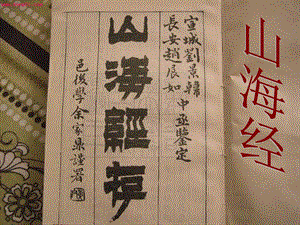 宣城劉景韓
長安趙展如中丞鑒定
山海經存
邑後學余家鼎謹署
山海经